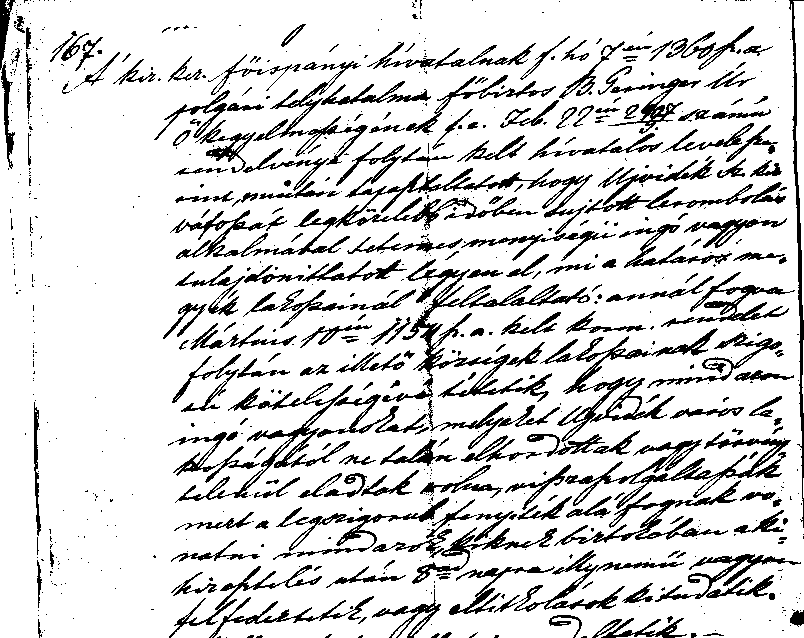 167.
A' kir. ker. főispányi hivatalnak f. hó 7én 1360 p. a.
polgári teljhatalmu főbiztos B. Geringer Úr
Ő kegyelmességének f. e. Feb. 22én 2627 számú
rendelvénye folytán kelt hivatalos levele sze-
rint, miután tapasztaltatott, hogy Ujvidék Sz. kir
várossát legközelebb időben sujtott lerombolás
alkalmával tetemes menyiségü ingó vagyon
tulajdonittatott légyen el, mi a határos me-
gyék lakossainál feltalálható: annál fogva
Mártius 10én 1154 p. a. kelt korm. rendelet
folytán az illető községek lakossainak szigo-
rú kötelességévé tétetik, hogy mindazon
ingó vagyonokat, melyeket Ujvidék város la-
kosságától ne talán elhordottak vagy törvény
telenül eladtak volna, visszapolgáltassák
mert a legszigorubb fenyiték alá fognak vo-
natni mindazok, kiknek birtokában a ki-
hirdetés után 8ad napra illynemü vagyon
felfedeztetik, vagy eltitkolások kitudatik.